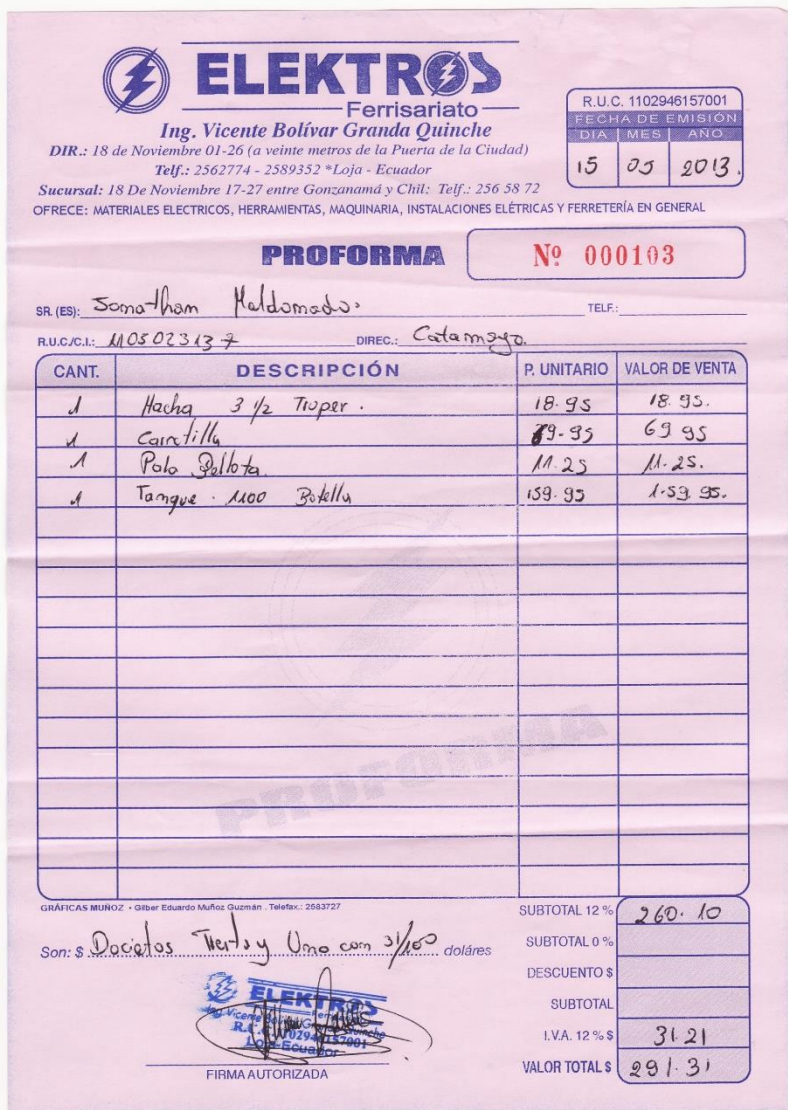 ELEKTROS
Ferrisariato
Ing. Vicente Bolívar Granda Quinche
DIR.: 18 de Noviembre 01-26 (a veinte metros de la Puerta de la Ciudad)
Telf.: 2562774 - 2589352 *Loja - Ecuador
Sucursal: 18 De Noviembre 17-27 entre Gonzanamá y Chil: Telf.: 256 58 72
OFRECE: MATERIALES ELECTRICOS, HERRAMIENTAS, MAQUINARIA, INSTALACIONES ELÉTRICAS Y FERRETERÍA EN GENERAL
R.U.C. 1102946157001
FECHA DE EMISIÓN
DIA MES AÑO
15 05 2013.
PROFORMA Nº 000103
SR. (ES): Jonathan Maldonado. TELF.:
R.U.C./C.I.: 110502313 7 DIREC.: Catamayo.
CANT. DESCRIPCIÓN P. UNITARIO VALOR DE VENTA
1 Hacha 3 1/2 Truper. 18.95 18.95.
1 Carretilla 69.95 69 95
1 Pala Bellota. 11.25 11.25.
1 Tanque. 1100 Botella 159.95 159.95.
PROFORMA
GRÁFICAS MUÑOZ • Gilber Eduardo Muñoz Guzmán . Telefax.: 2583727
SUBTOTAL 12 % 260.10
Son: $ Docietos Treita y Uno con 31/100 doláres
SUBTOTAL 0 %
DESCUENTO $
SUBTOTAL
I.V.A. 12 % $ 31.21
VALOR TOTAL $ 291.31
ELEKTROS
Loja-Ecuador
FIRMA AUTORIZADA